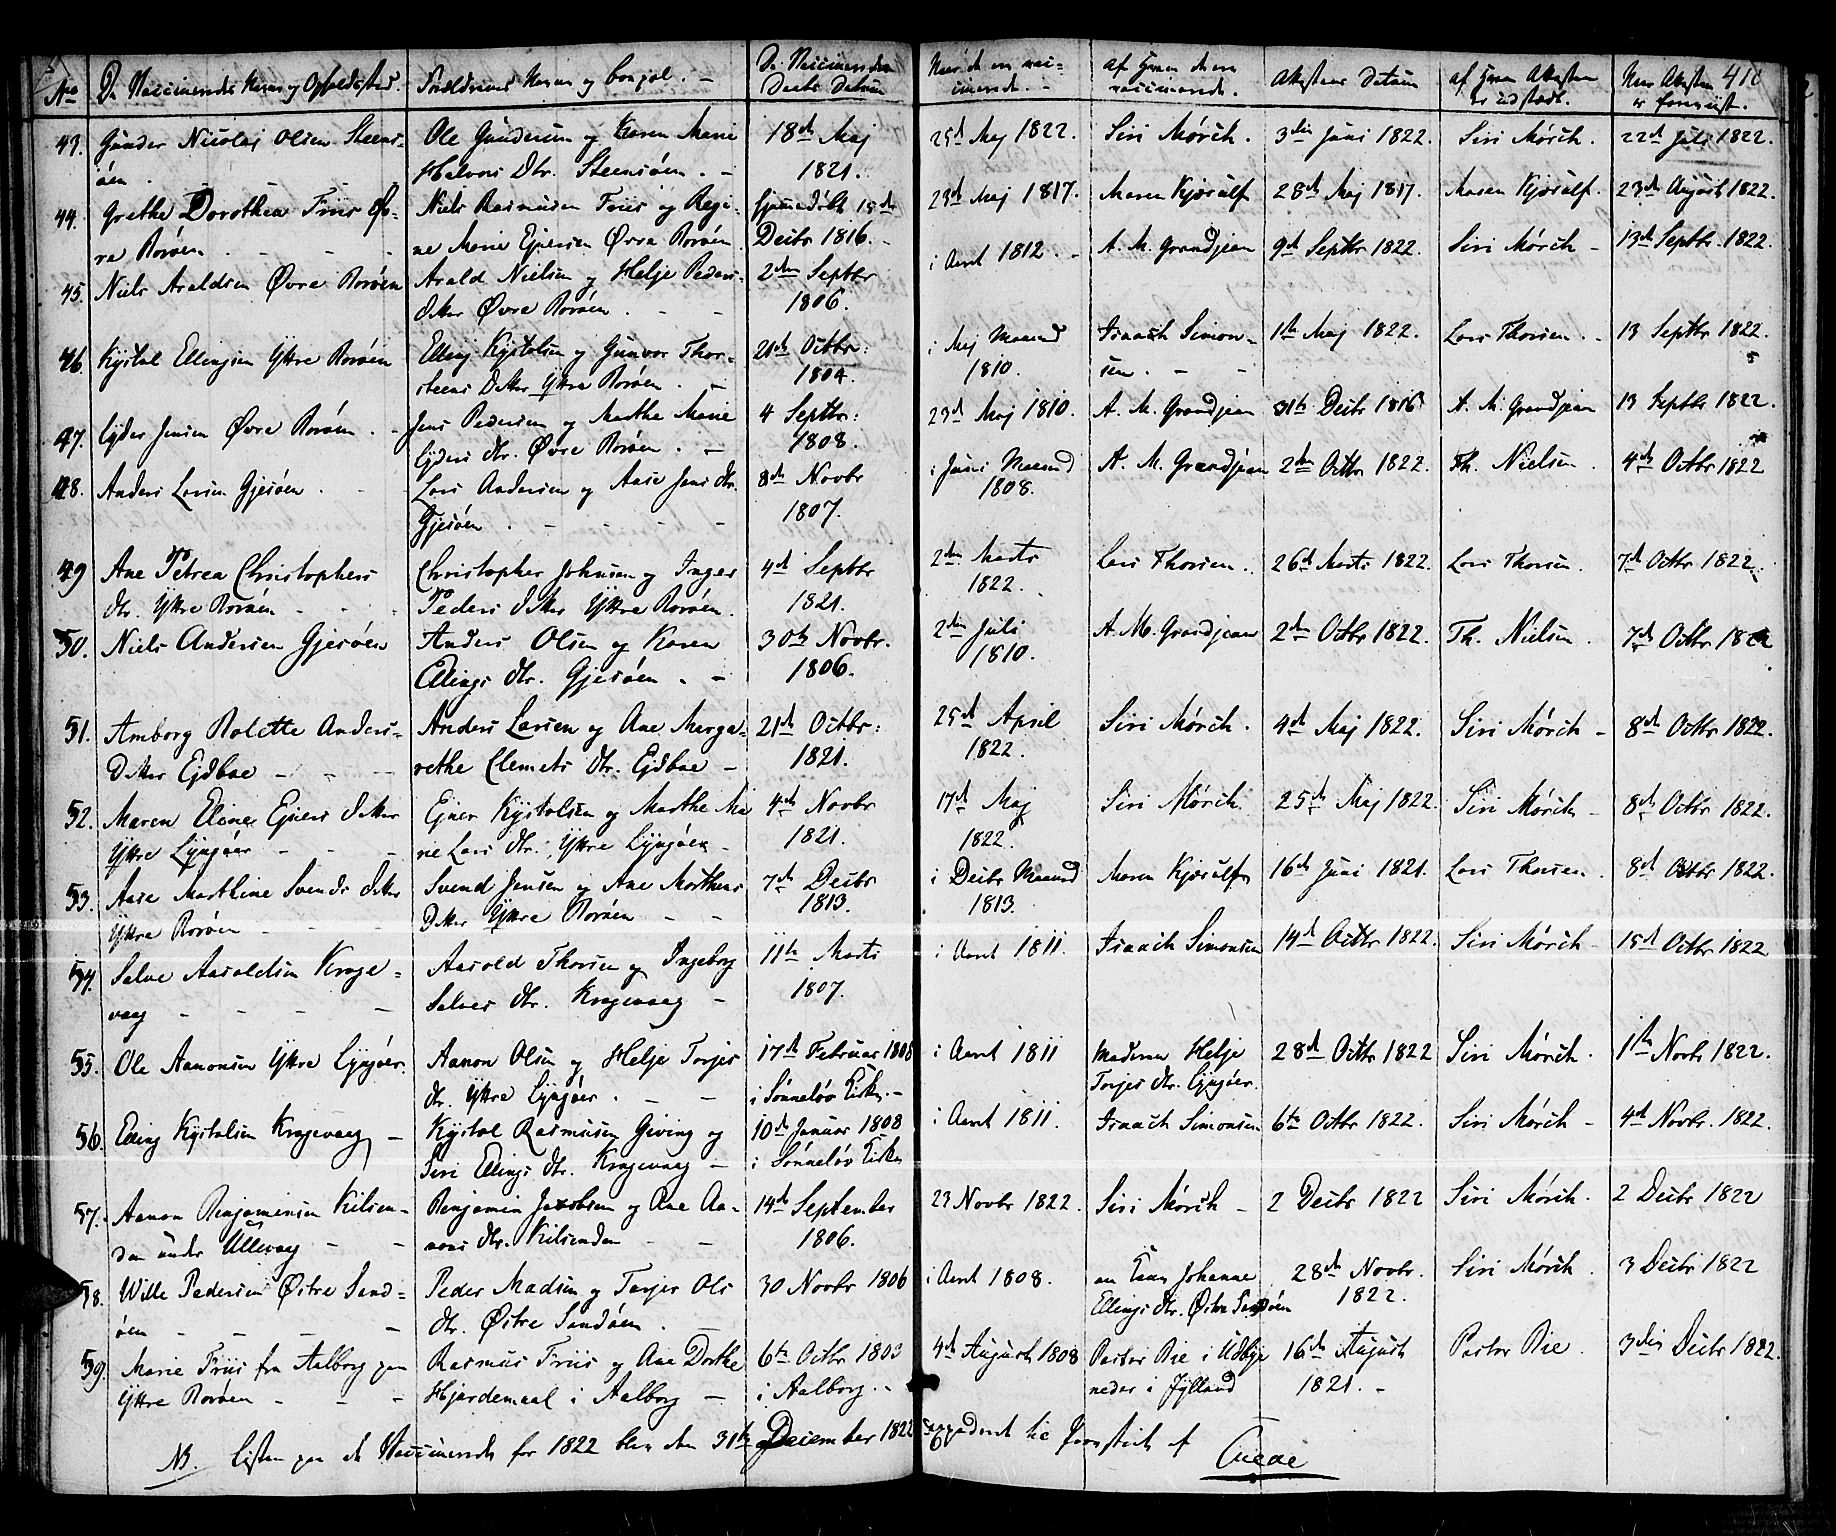 410
No | De Vaccineredes Navn og Opholdssted. | Forældrenes Navn og bopæl. | De Vaccineredes Daabs Datum | Naar de ere vaccinerede. | af hvem de ere vaccinerede. | Attestens Datum | af hvem Attesten er udstædt. | Naar Attesten er foreviist.
43. Gunder Nicolaj Olsen Steensøen. | Ole Gundersen og Karen Marie Halvors Dtr. Steensøen. | 18de Maj 1821. | 25d Maj 1822. | Siri Mörch. | 3die Juni 1822. | Siri Mörch. | 22d Juli 1822.
44. Grethe Dorothea Friis Øvre Borøen | Niels Rasmusen Friis og Regine Marie Ejersen Øvre Borøen | hjemedøbt 18de Decbr 1816. | 23d Maj 1817. | Maren Kjærulf | 28de Maj 1817. | Maren Kjærulf. | 23d August 1822.
45. Niels Araldsen Øvre Borøen | Arald Nielsen og Helje Peders Dtter Øvre Borøen. | 2den Septbr 1806. | i Aaret 1812. | A. M. Grandjean | 9d Septbr 1822. | Siri Mörch | 13d Septbr. 1822.
46. Kystol Ellingsen Yttre Borøen | Elling Kystolsen og Gunvor Thorsteens Dtter Yttre Borøen. | 21de Octbr: 1804. | i Maj Maaned 1810. | Isaach Simonsen. | 1ste Maj 1822. | Lars Thorsen. | 13 Septbr 1822.
47. Lyder Jensen Øvre Borøen. | Jens Pedersen og Marthe Marie Lyders Dtr. Øvre Borøen. | 4 Septbr: 1808. | 23d Maj 1810. | A. M. Grandjean | 31te Decbr 1816 | A. M. Grandjean | 13 Septbr 1822.
48. Anders Larsen Gjesøen. | Lars Andersen og Aase Jens Dtr. Gjesøen. | 8de Novbr 1807. | i Juni Maaned 1808. | A. M. Grandjean | 2den Octbr 1822. | Th. Nielsen. | 4de Octbr 1822
49 Ane Petrea Christophers Dtr. Yttre Borøen | Christopher Johnsen og Inger Peders Dtter Yttre Borøen. | 4d Septbr 1821. | 2den Marts 1822. | Lars Thorsen. | 26d Marts 1822. | Lars Thorsen. | 7d Octbr 1822.
50. Niels Andersen Gjesøen | Anders Olsen og Karen Ellings Dtr. Gjesøen. | 30te Novbr. 1806. | 2den Juli 1810. | A. M. Grandjean | 2den Octbr 1822. | Th. Nielsen. | 7de Octbr 1822
51. Amborg Rolette Anders-Dtter Ejdboe | Anders Larsen og Ane Margarethe Clemets Dtr. Ejdboe | 21de Octbr: 1821. | 25d April 1822. | Siri Mörch. | 4d Maj 1822. | Siri Mörch | 8d Octbr 1822.
52. Maren Eline Ejners Dtter Yttre Lyngöer | Ejner Kystolsen og Marthe Marie Lars Dtr. Yttre Lyngöer | 4de Novbr 1821. | 17d Maj 1822. | Siri Mörch. | 25de Maj 1822. | Siri Mörch | 8d Octbr 1822.
53. Aase Marthine Svends Dtter Yttre Borøen | Svend Jensen og Ane Morthens Dtter Yttre Borøen | 7de Decbr 1813. | i Decbr Maaned 1813. | Maren Kjærulf | 16de Juni 1821. | Lars Thorsen. | 8d Octbr 1822.
54. Salve Aaroldsen Kragevaag | Aarold Thorsen og Ingeborg Salves Dtr. Kragevaag | 11te Marts 1807. | i Aaret 1811. | Isaach Simonsen | 14d Octbr 1822. | Siri Mörch | 15d Octbr 1822
55. Ole Aanonsen Yttre Lyngöer. | Aanon Olsen og Helje Torjes Dtr. Yttre Lyngöer. | 17de Februar 1805 i Sönneløv Kirke. | i Aaret 1811 | Moderen Helje Torjes Dtr. Lyngöer. | 28d Octbr 1822 | Siri Mörch. | 1ste Novbr 1822.
56. Elling Kystolsen Kragevaag | Kystol Rasmusen Giving og Siri Ellings Dtr. Kragevaag | 10d Januar 1808 i Sönneløv Kirke | i Aaret 1811. | Isaach Simonsen | 6te Octbr 1822. | Siri Mörch | 4d Novbr. 1822.
57. Aanon Benjaminsen Kilsenden under Ullevaag | Benjamin Jacobsen og Ane Aanons Dtr. Kilsenden | 14d September 1806. | 23 Novbr 1822. | Siri Mörch | 2 Decbr 1822 | Siri Mörch. | 2 Decbr 1822
58. Wille Pedersen Östre Sandöen | Peder Madsen og Torjer Ols Dtr. Östre Sandöen. | 30 Novbr 1806 | i Aaret 1808. | en Kone Johanne Ellings Dtr. Östre Sandöen | 28de Novbr. 1822. | Siri Mörch | 3 Decbr 1822
59. Marie Friis fra Aalborg paa Yttre Borøen | Rasmus Friis og Ane Dorthe Hjardemaal i Aalborg | 6te Octbr 1803 i Aalborg. | 4d August 1808 | Pastor Bie i Udbyneder i Jylland | 16de August 1821. | Pastor Bie. | 3die Decbr 1822.
NB. Listen paa de Vaccinerede for 1822 blev den 31te December 1822 expederet til Provstiet af